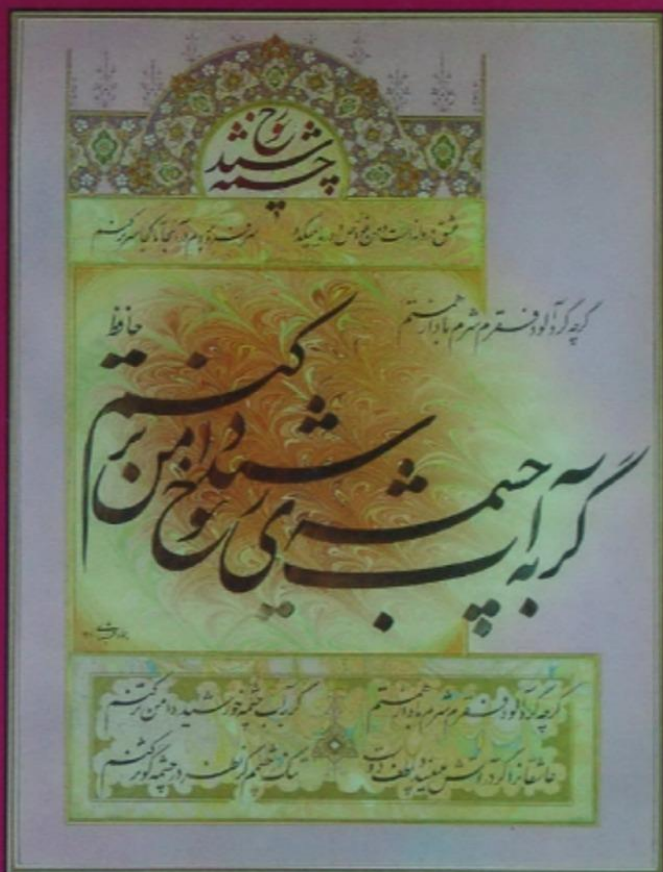 چشمه خورشید
عشق دردانه است و من غواص و دریا میکده سر فرو بردم در آنجا تا کجا سر بر کنم
گرچه گردآلود فقرم شرم باد از همتم
حافظ
گر به آب چشمه ی خورشید دامن تر کنم
گرچه گردآلود فقرم شرم باد از همتم گر به آب چشمه خورشید دامن تر کنم
عاشقانرا گر در آتش میپسندد لطف دوست تنگ چشمم گر نظر در چشمه کوثر کنم